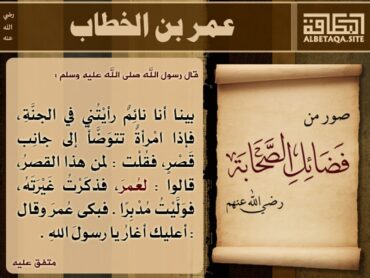 عمر بن الخطاب
رضي
الله
عنه
البطاقة
ALBETAQA.SITE
قال رسول الله صلى الله عليه وسلم :
بينا أنا نائِمٌ رأيْتُني في الجنَّةِ،
فإذا امْرأةٌ تتوَضَّأُ إلى جانِبِ
قصْرٍ، فقلْت : لمن هذا القصرُ،
قالوا : لعُمرَ، فذكرْتُ غَيْرَتَهُ،
فوَلَّيتُ مُدْبِرًا . فبكى عُمرَ وقال
: أعليك أغارُ يا رسولَ اللهِ .
متفق عليه
صور من
فضائل الصحابة
رضي الله عنهم